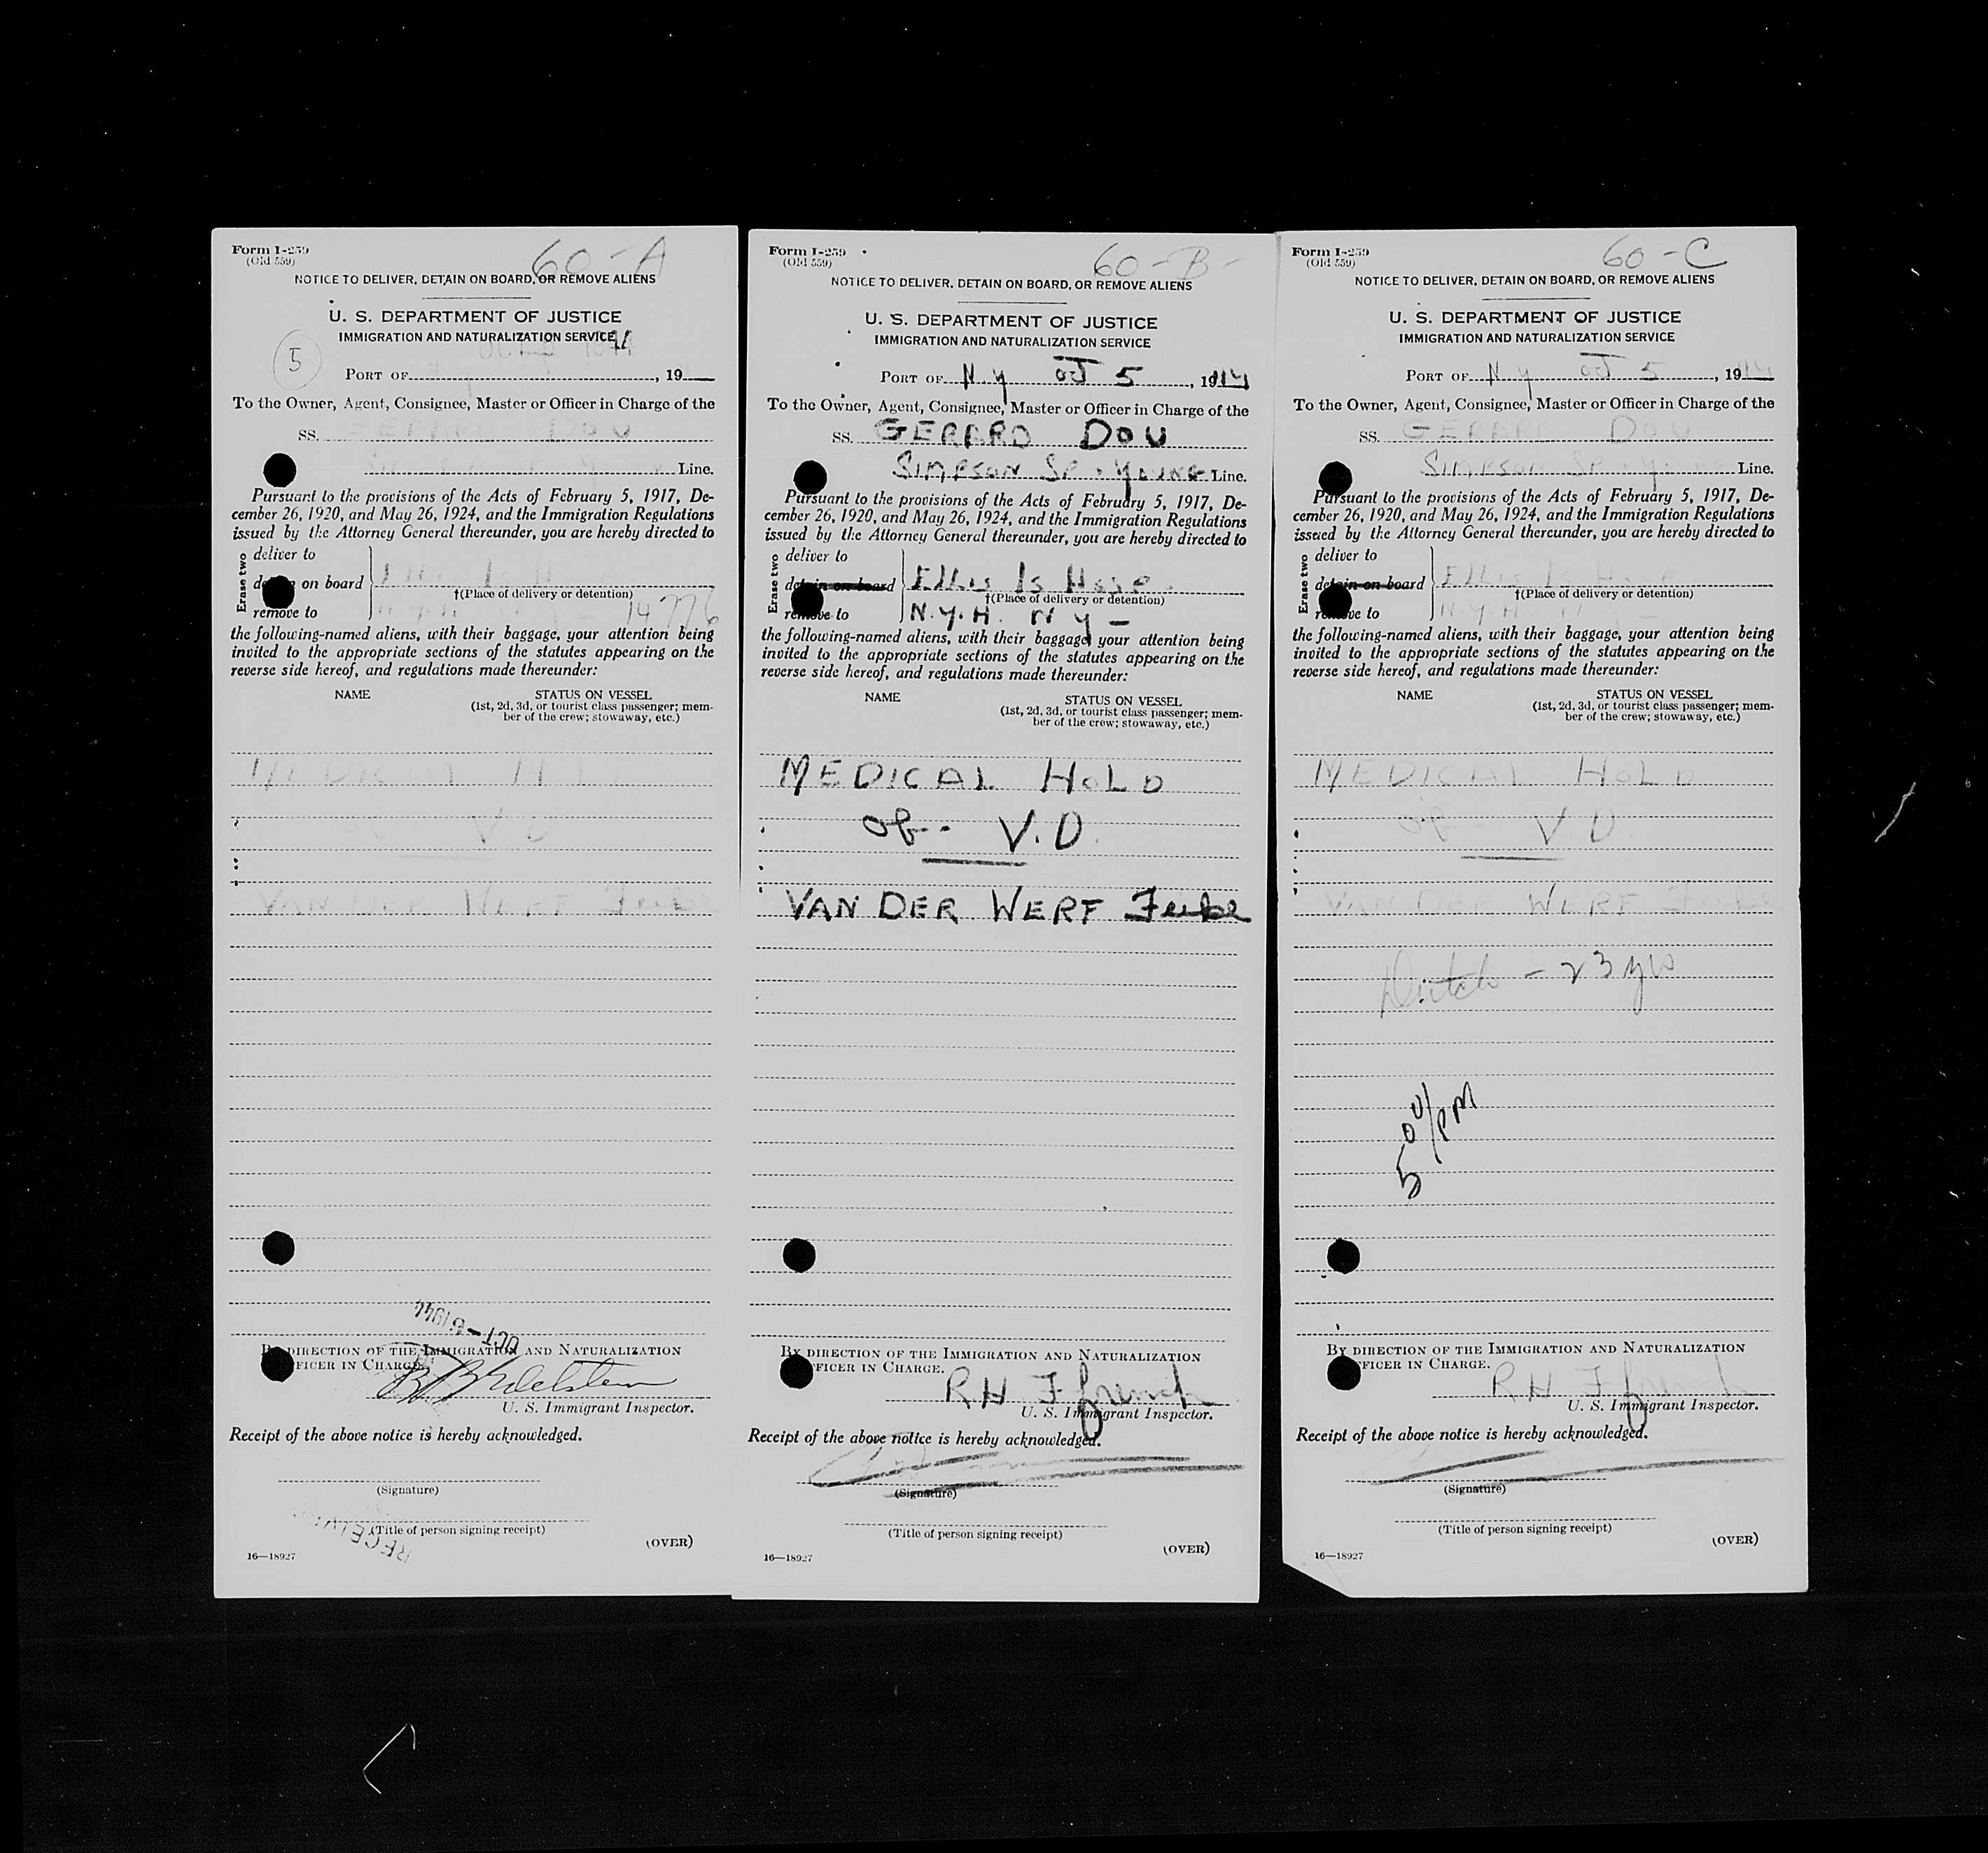 60-A
Form I-259
(Old 559)
NOTICE TO DELIVER, DETAIN ON BOARD, OR REMOVE ALIENS
U. S. DEPARTMENT OF JUSTICE
IMMIGRATION AND NATURALIZATION SERVICE
5
PORT OF , 19
To the Owner, Agent, Consignee, Master or Officer in Charge of the
SS. GERARD DOU
Line.
Pursuant to the provisions of the Acts of February 5, 1917, De-
cember 26, 1920, and May 26, 1924, and the Immigration Regulations
issued by the Attorney General thereunder, you are hereby directed to
Erase two
deliver to
on board
†(Place of delivery or detention)
remove to 14776
the following-named aliens, with their baggage, your attention being
invited to the appropriate sections of the statutes appearing on the
reverse side hereof, and regulations made thereunder:
NAME STATUS ON VESSEL
(1st, 2d, 3d, or tourist class passenger; mem-
ber of the crew; stowaway, etc.)
MEDICAL H
V D
VAN DER WERF
OCT - 1944
BY DIRECTION OF THE IMMIGRATION AND NATURALIZATION
OFFICER IN CHARGE.
Edelstein
U. S. Immigrant Inspector.
Receipt of the above notice is hereby acknowledged.
(Signature)
RECEIVED
(Title of person signing receipt)
(OVER)
16—18927
60-B-
Form I-259
(Old 559)
NOTICE TO DELIVER, DETAIN ON BOARD, OR REMOVE ALIENS
U. S. DEPARTMENT OF JUSTICE
IMMIGRATION AND NATURALIZATION SERVICE
PORT OF N.Y Oct 5, 1944
To the Owner, Agent, Consignee, Master or Officer in Charge of the
SS. GERARD DOU
SIMPSON SP. YOUNG Line.
Pursuant to the provisions of the Acts of February 5, 1917, De-
cember 26, 1920, and May 26, 1924, and the Immigration Regulations
issued by the Attorney General thereunder, you are hereby directed to
Erase two
deliver to
detain on board Ellis Is Hosp.
†(Place of delivery or detention)
remove to N.Y.H. N Y -
the following-named aliens, with their baggage, your attention being
invited to the appropriate sections of the statutes appearing on the
reverse side hereof, and regulations made thereunder:
NAME STATUS ON VESSEL
(1st, 2d, 3d, or tourist class passenger; mem-
ber of the crew; stowaway, etc.)
MEDICAL HOLD
V.D.
VAN DER WERF
BY DIRECTION OF THE IMMIGRATION AND NATURALIZATION
OFFICER IN CHARGE.
RH Ffrench
U. S. Immigrant Inspector.
Receipt of the above notice is hereby acknowledged.
(Signature)
(Title of person signing receipt)
(OVER)
16—18927
60-C
Form I-259
(Old 559)
NOTICE TO DELIVER, DETAIN ON BOARD, OR REMOVE ALIENS
U. S. DEPARTMENT OF JUSTICE
IMMIGRATION AND NATURALIZATION SERVICE
PORT OF N Y Oct 5, 1944
To the Owner, Agent, Consignee, Master or Officer in Charge of the
SS. GERARD DOU
SIMPSON SP. YOUNG Line.
Pursuant to the provisions of the Acts of February 5, 1917, De-
cember 26, 1920, and May 26, 1924, and the Immigration Regulations
issued by the Attorney General thereunder, you are hereby directed to
Erase two
deliver to
detain on board Ellis Is Hosp
†(Place of delivery or detention)
remove to N.Y.H. N Y -
the following-named aliens, with their baggage, your attention being
invited to the appropriate sections of the statutes appearing on the
reverse side hereof, and regulations made thereunder:
NAME STATUS ON VESSEL
(1st, 2d, 3d, or tourist class passenger; mem-
ber of the crew; stowaway, etc.)
MEDICAL HOLD
V D
VAN DER WERF
Dutch - 23 yrs
5 00/PM
BY DIRECTION OF THE IMMIGRATION AND NATURALIZATION
OFFICER IN CHARGE.
RH Ffrench
U. S. Immigrant Inspector.
Receipt of the above notice is hereby acknowledged.
(Signature)
(Title of person signing receipt)
(OVER)
16—18927